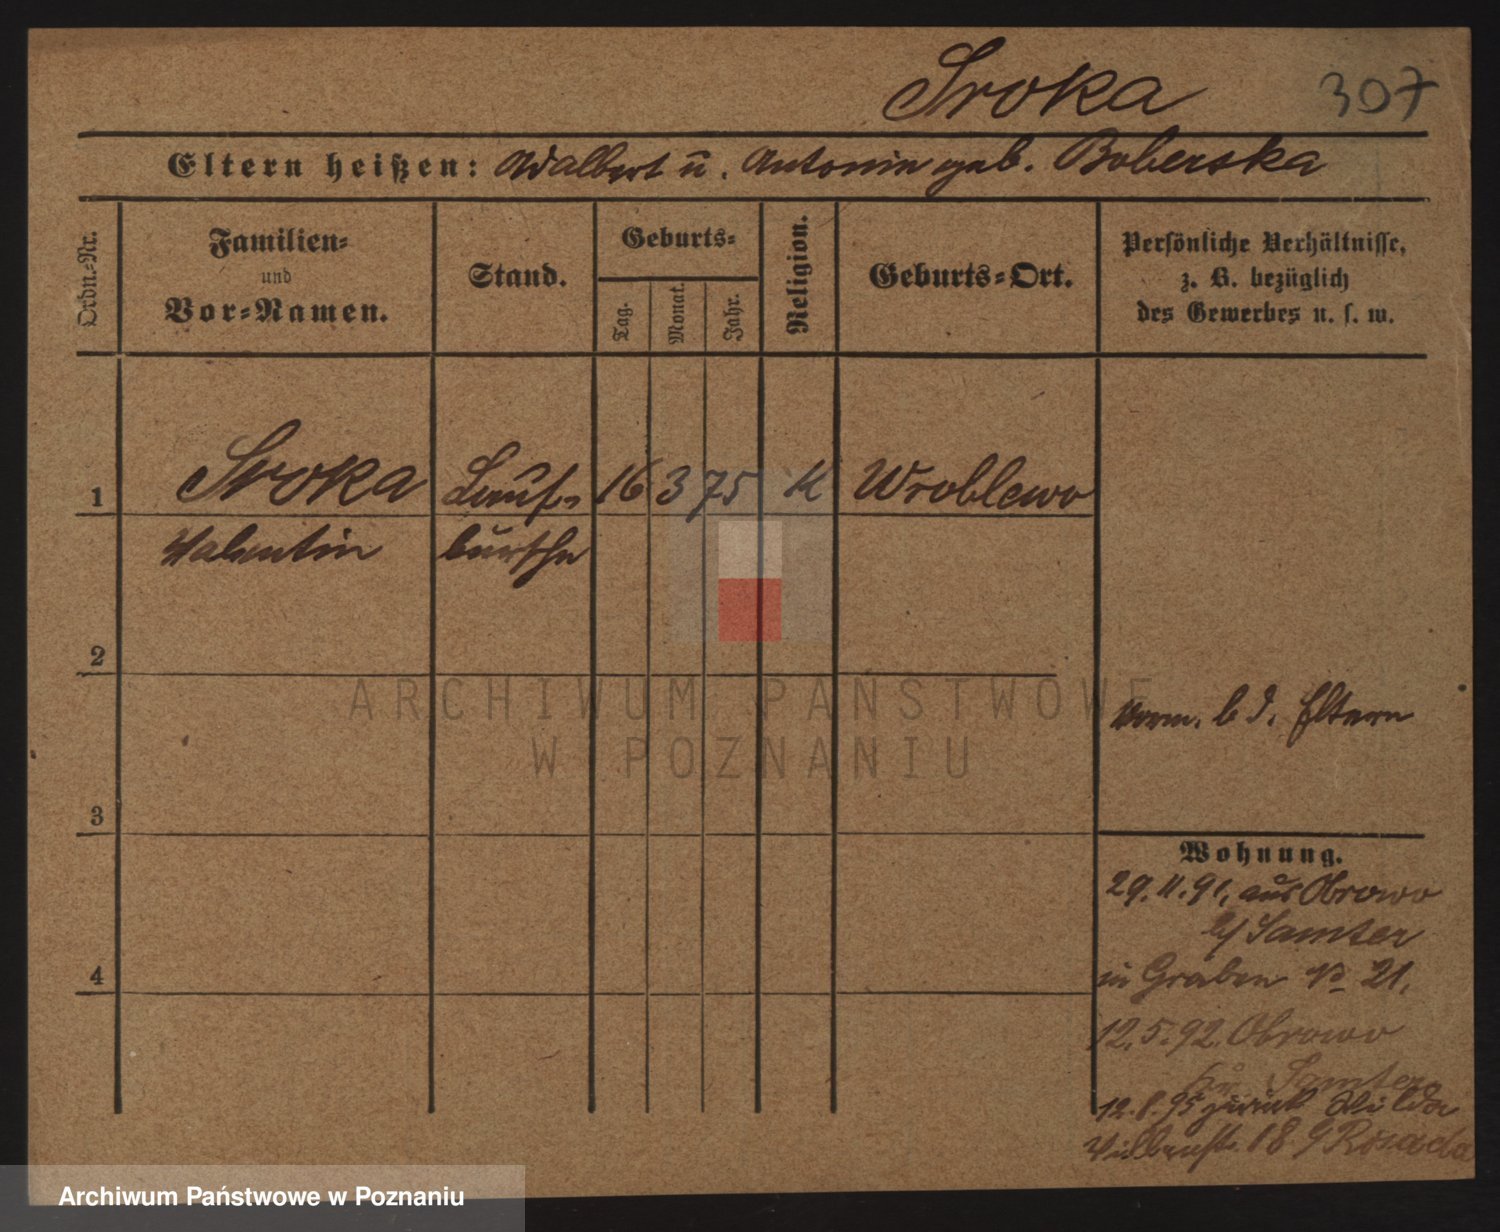 Sroka 307
Eltern heißen: Adalbert u. Antonin geb. Boberska
Ordn.-Nr.
Familien-
und
Vor-Namen.
Stand.
Geburts-
Tag.
Monat.
Jahr.
Religion.
Geburts-Ort.
Persönliche Verhältnisse,
z. B. bezüglich
des Gewerbes u. s. w.
1 Sroka Lauf- 16 3 75 K Wroblewo
Valentin bursche
2
Vorm. b d. Eltern
3
Wohnung.
29. 11. 91, aus Obrowo
b/ Samter
in Graben No 21.
4
12. 5. 92. Obrowo
Samter
12. 8. 95 zurück Wilda
18 Rosada
ARCHIWUM PAŃSTWOWE
W POZNANIU
Archiwum Państwowe w Poznaniu